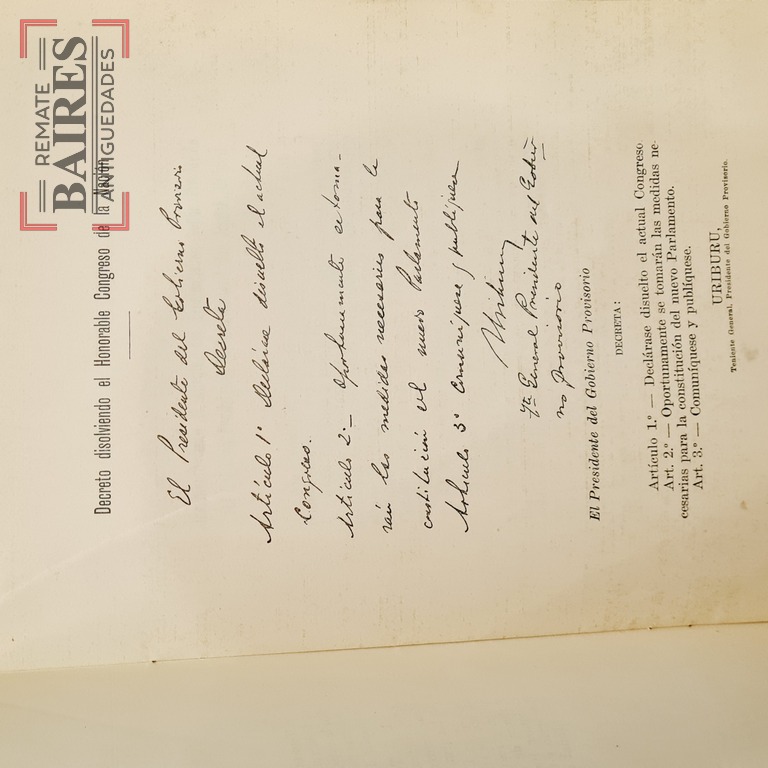 REMATE
BAIRES
ANTIGUEDADES
Decreto disolviendo el Honorable Congreso de la Nación
El Presidente del Gobierno Provisorio
Decreta
Artículo 1º Declárase disuelto el actual
Congreso.
Artículo 2º — Oportunamente se toma-
rán las medidas necesarias para la
constitución del nuevo Parlamento
Artículo 3º Comuníquese y publíquese
Uriburu
Tte General Presidente del Gobier
no Provisorio
El Presidente del Gobierno Provisorio
DECRETA:
Artículo 1.º — Declárase disuelto el actual Congreso
Art. 2.º — Oportunamente se tomarán las medidas ne-
cesarias para la constitución del nuevo Parlamento.
Art. 3.º — Comuníquese y publíquese.
URIBURU,
Teniente General, Presidente del Gobierno Provisorio.